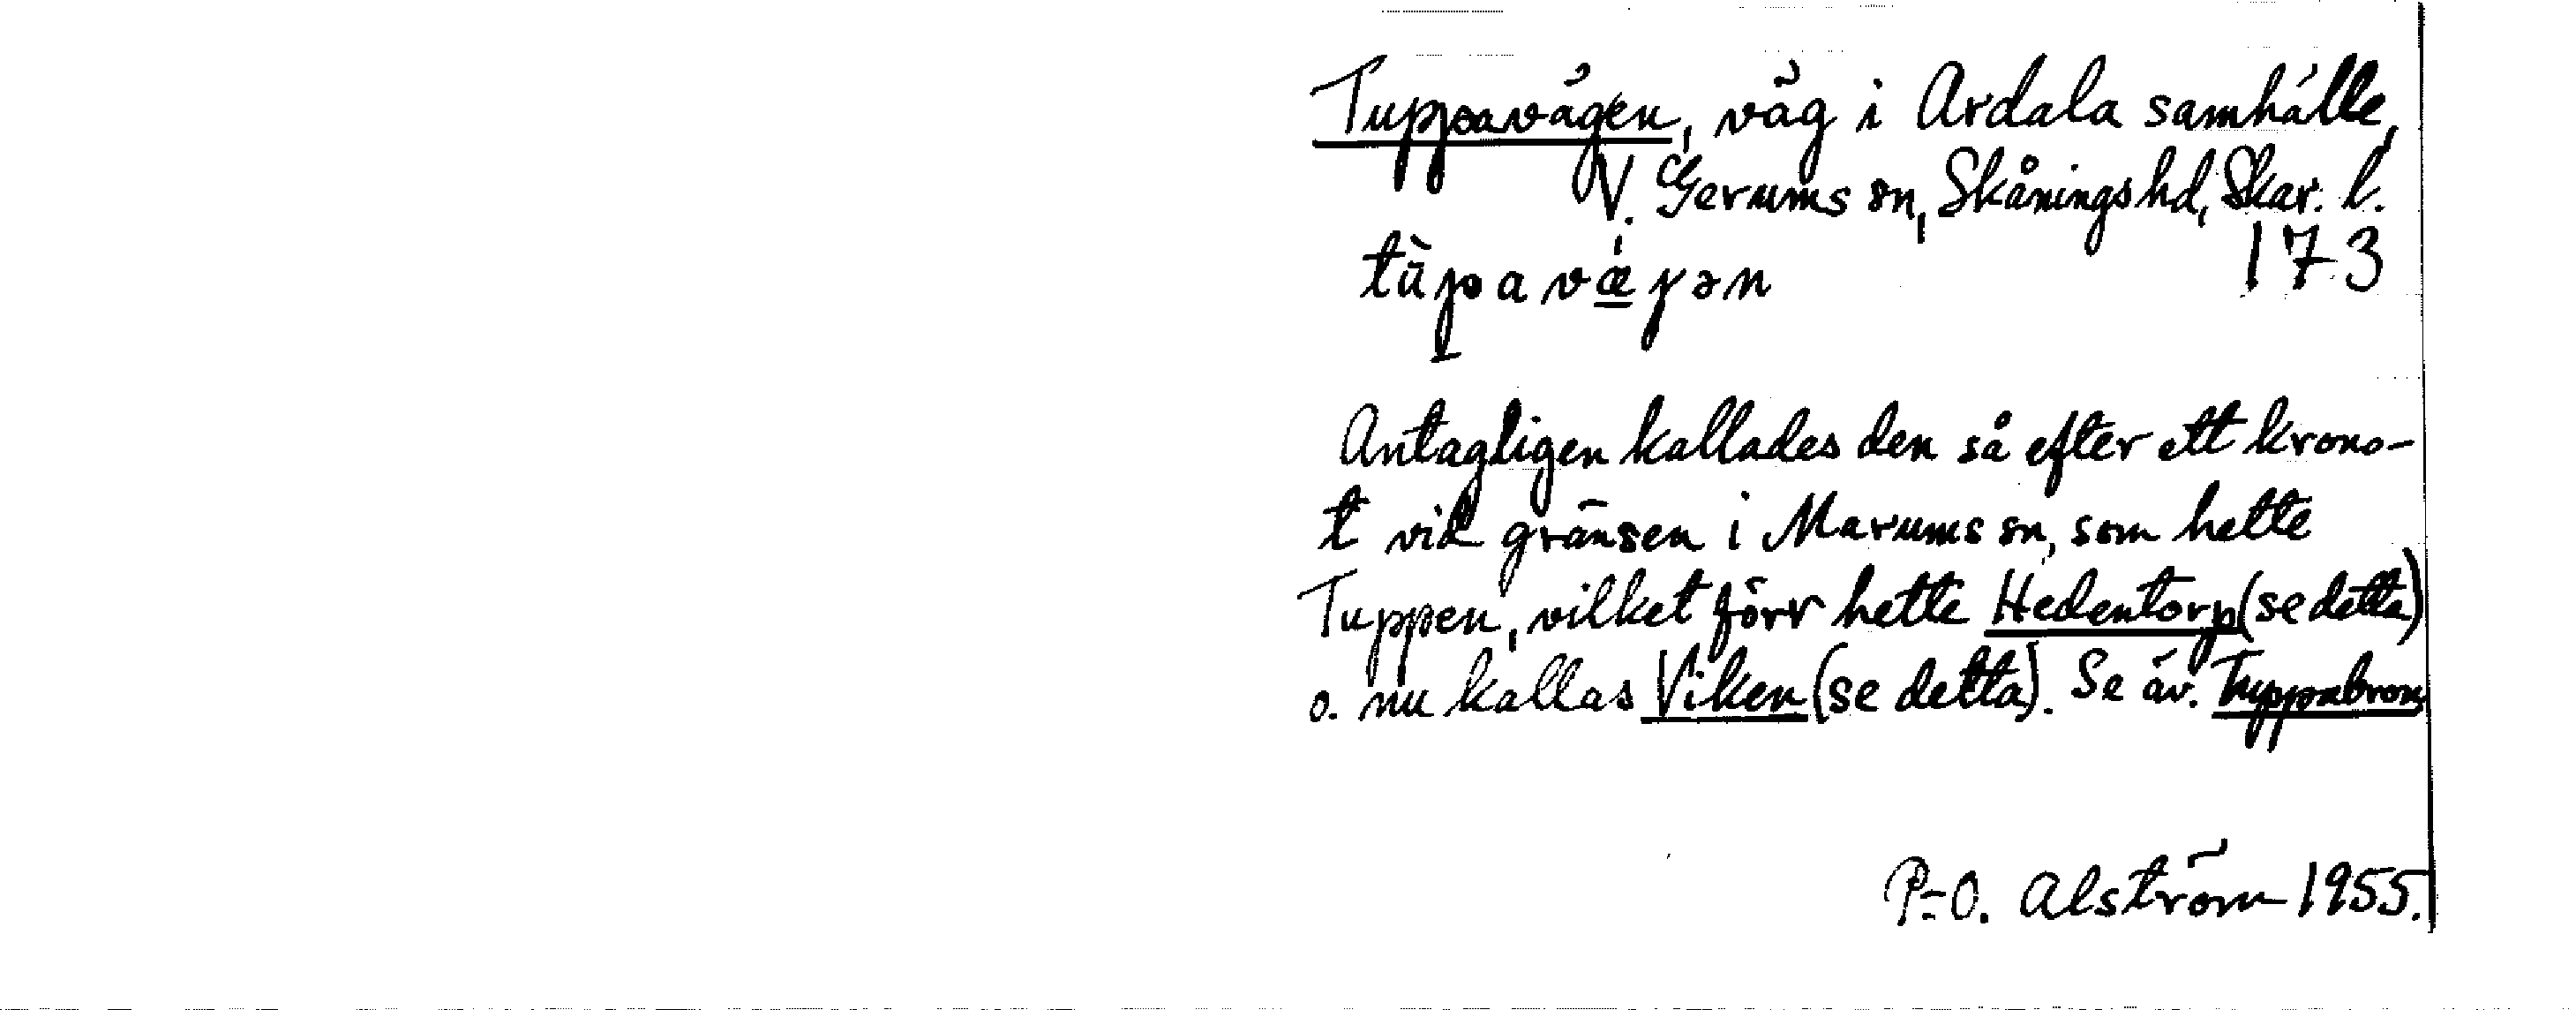 Tuppavägen, väg i Ardala samhälle,
V. Gerums sn, Skånings hd, Skar. l.
tùpavæ̀ɣən 173
Antagligen kallades den så efter ett krono-
t vid gränsen i Marums sn, som hette
Tuppen, vilket förr hette Hedentorp (se detta)
o. nu kallas Viken (se detta). Se äv. Tuppabron
P-O. Alström 1955.